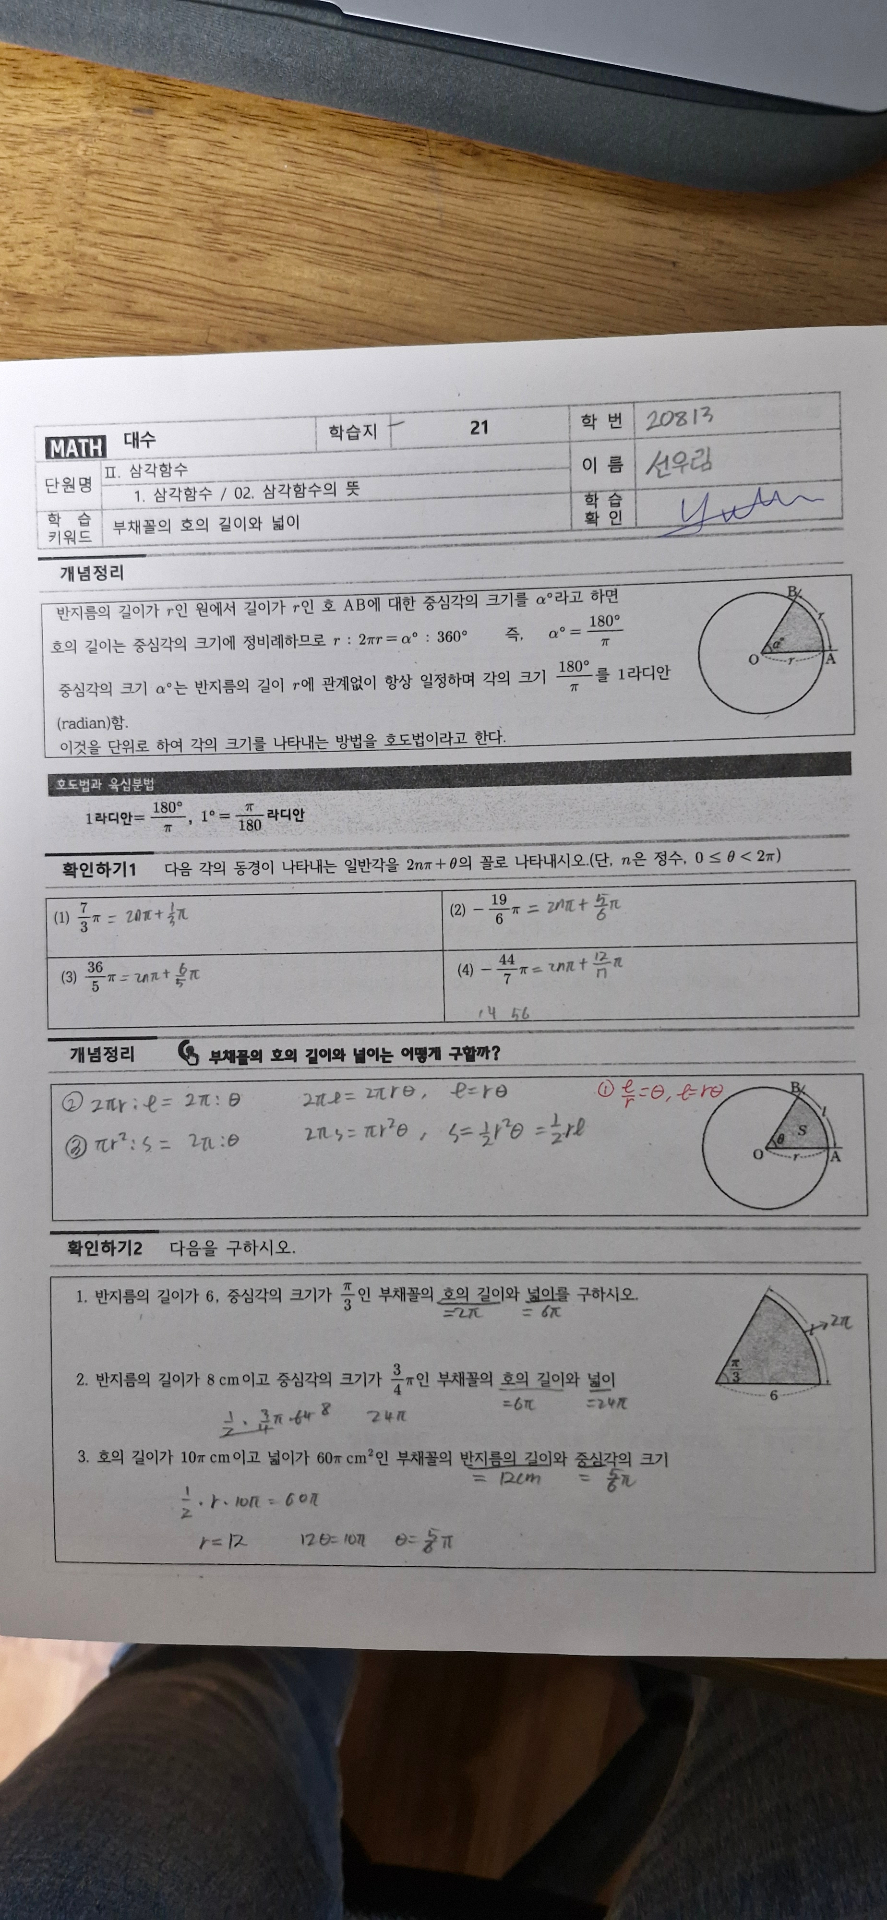 MATH 대수 학습지 21 학 번 20813
단원명 Ⅱ. 삼각함수 이 름 선우림
1. 삼각함수 / 02. 삼각함수의 뜻
학 습 키워드 부채꼴의 호의 길이와 넓이 학 습 확 인
개념정리
반지름의 길이가 r인 원에서 길이가 r인 호 AB에 대한 중심각의 크기를 α°라고 하면
호의 길이는 중심각의 크기에 정비례하므로 r : 2πr = α° : 360° 즉, α° = 180°/π
중심각의 크기 α°는 반지름의 길이 r에 관계없이 항상 일정하며 각의 크기 180°/π를 1라디안
(radian)함.
이것을 단위로 하여 각의 크기를 나타내는 방법을 호도법이라고 한다.
B r α° O r A
호도법과 육십분법
1라디안= 180°/π , 1° = π/180 라디안
확인하기1 다음 각의 동경이 나타내는 일반각을 2nπ+θ의 꼴로 나타내시오.(단, n은 정수, 0 ≤ θ < 2π)
(1) 7/3 π = 2nπ + 1/3 π
(2) − 19/6 π = 2nπ + 5/6 π
(3) 36/5 π = 2nπ + 6/5 π
(4) − 44/7 π = 2nπ + 12/7 π
14 56
개념정리 부채꼴의 호의 길이와 넓이는 어떻게 구할까?
② 2πr : ℓ = 2π : θ 2πℓ = 2πrθ, ℓ = rθ ① ℓ/r = θ, ℓ = rθ
③ πr² : S = 2π : θ 2πS = πr²θ, S = 1/2 r²θ = 1/2 rℓ
B l θ S O r A
확인하기2 다음을 구하시오.
1. 반지름의 길이가 6, 중심각의 크기가 π/3인 부채꼴의 호의 길이와 넓이를 구하시오.
=2π = 6π
π/3 6 2π
2. 반지름의 길이가 8 cm이고 중심각의 크기가 3/4 π인 부채꼴의 호의 길이와 넓이
=6π =24π
1/2 · 3/4 π · 64 8 24π
3. 호의 길이가 10π cm이고 넓이가 60π cm²인 부채꼴의 반지름의 길이와 중심각의 크기
= 12cm = 5/6 π
1/2 · r · 10π = 60π
r = 12 12θ = 10π θ = 5/6 π